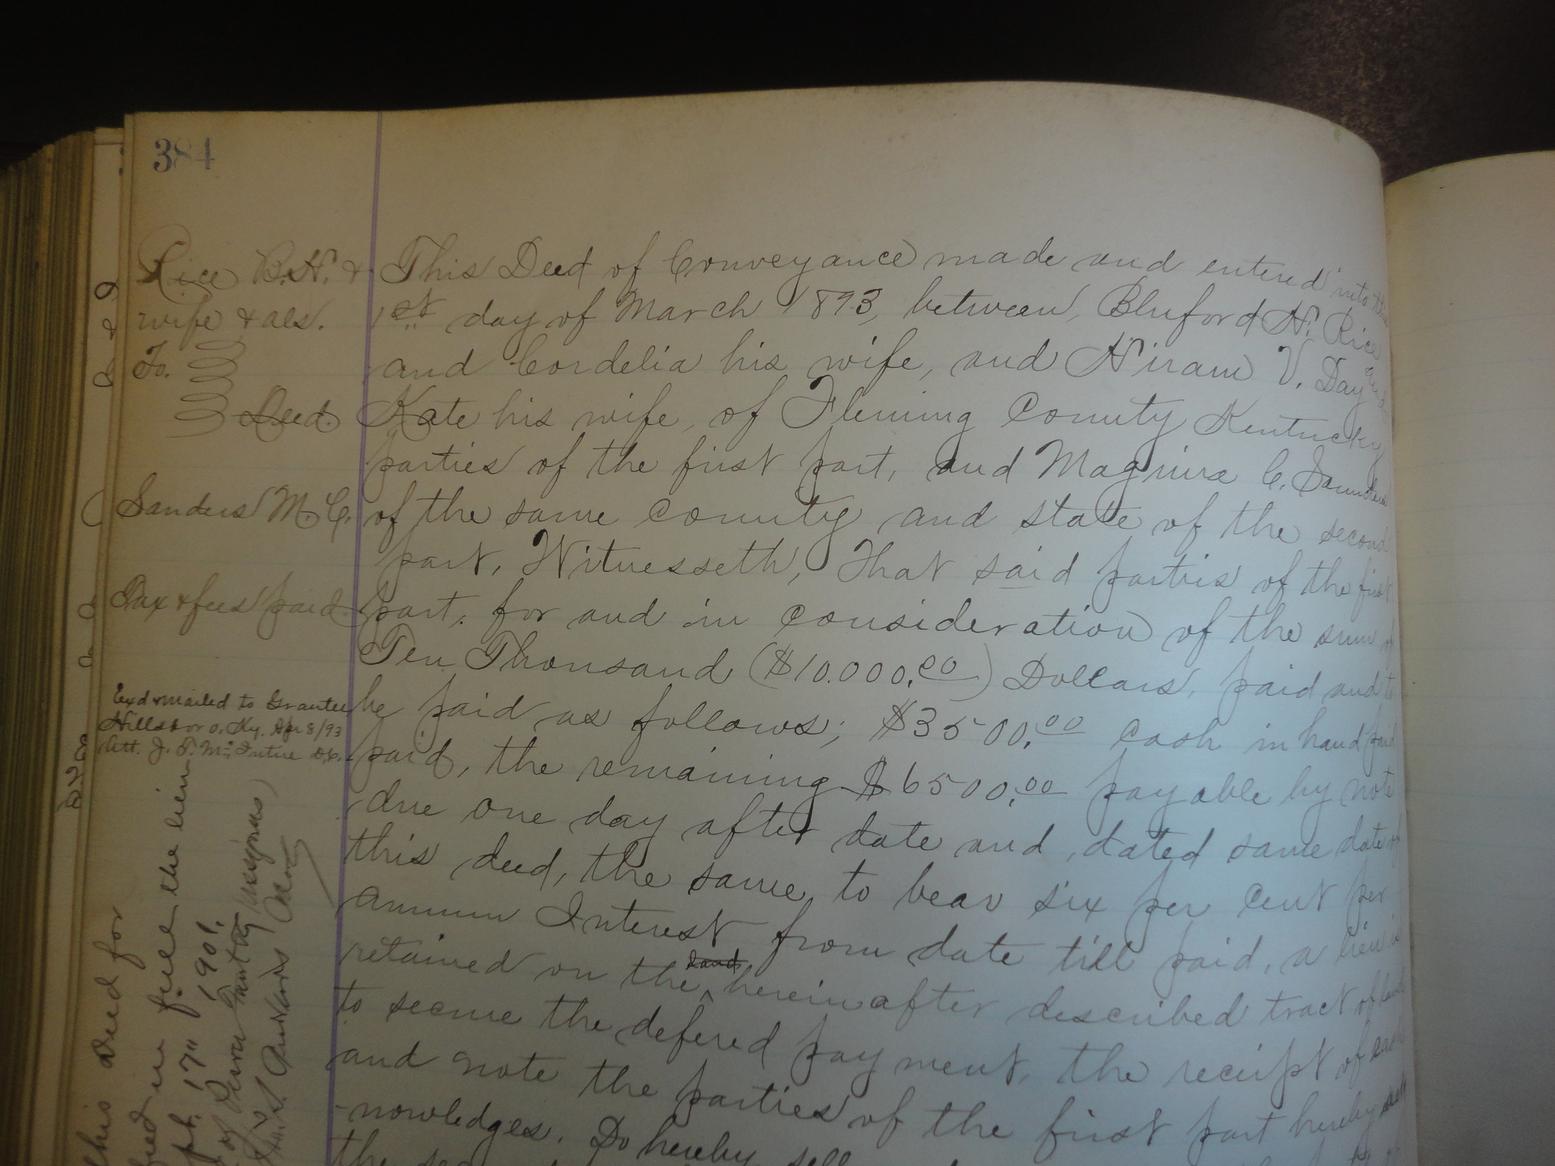 384
Rice B.H. &
wife & als.
To.
Deed.
Sanders M. C.
Tax & fees paid
Exd & mailed to Grantee
Hillsboro, Ky. Apr 8/93
Att. J. T. McIntire D.C.
This Deed of Conveyance made and entered into this
1st day of March 1893, between, Bluford H. Rice
and Cordelia his wife, and Hiram V. Day and
Kate his wife, of Fleming County Kentucky
parties of the first part, and Magnira C. Saunders
of the same county and state of the second
part, Witnesseth, That said parties of the first
part, for and in consideration of the sum of
Ten Thousand ($10.000.00) Dollars, paid and to
be paid as follows; $3500.00 cash in hand paid
paid, the remaining $6500.00 payable by note
due one day after date and dated same date of
this deed, the same to bear six per cent per
annum Interest from date till paid, a lien is
retained on the land hereinafter described tract of land
to secure the defered payment, the receipt of cash
and note the parties of the first part hereby ack
-nowledges. Do hereby sell
this deed for
in full the lien
17" 1901.